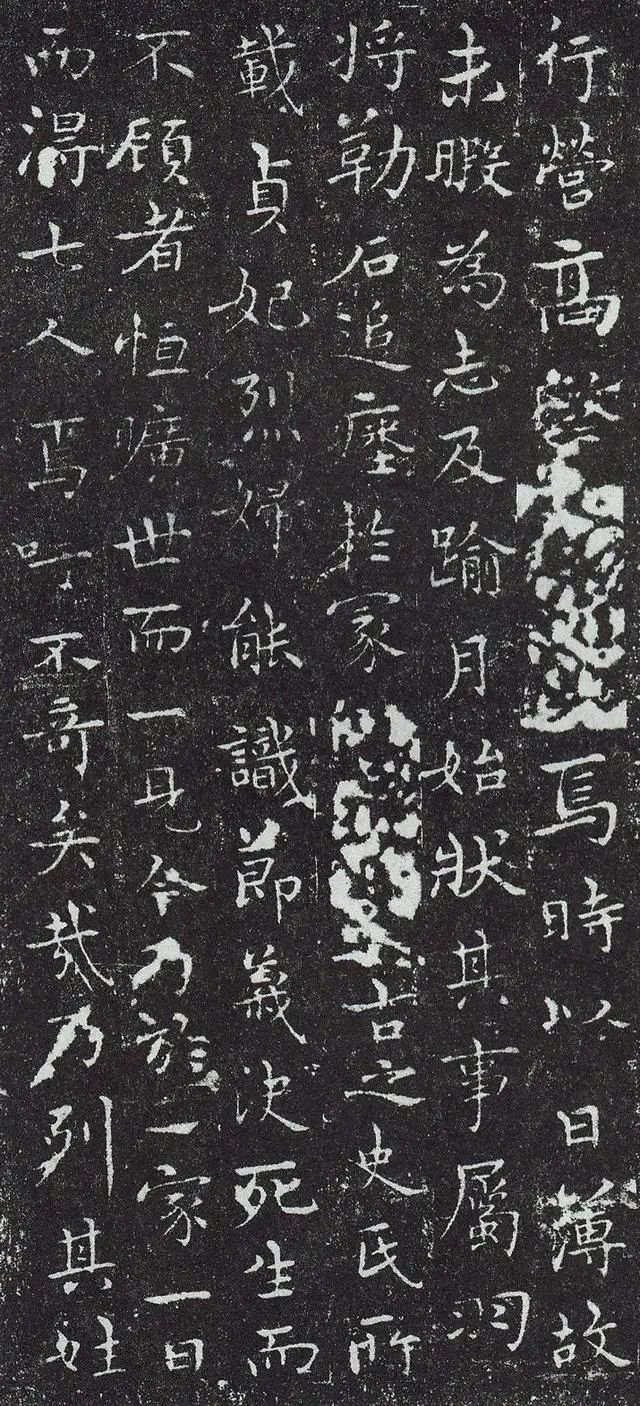 行營高焉時以日薄故
未暇為志及踰月始狀其事屬羽
将勒石追瘞於冢古之史氏所
載貞妃烈婦能識節義決死生而
不顧者恒曠世而一見今乃於一家一日
而得七人焉吁不奇矣哉乃列其姓